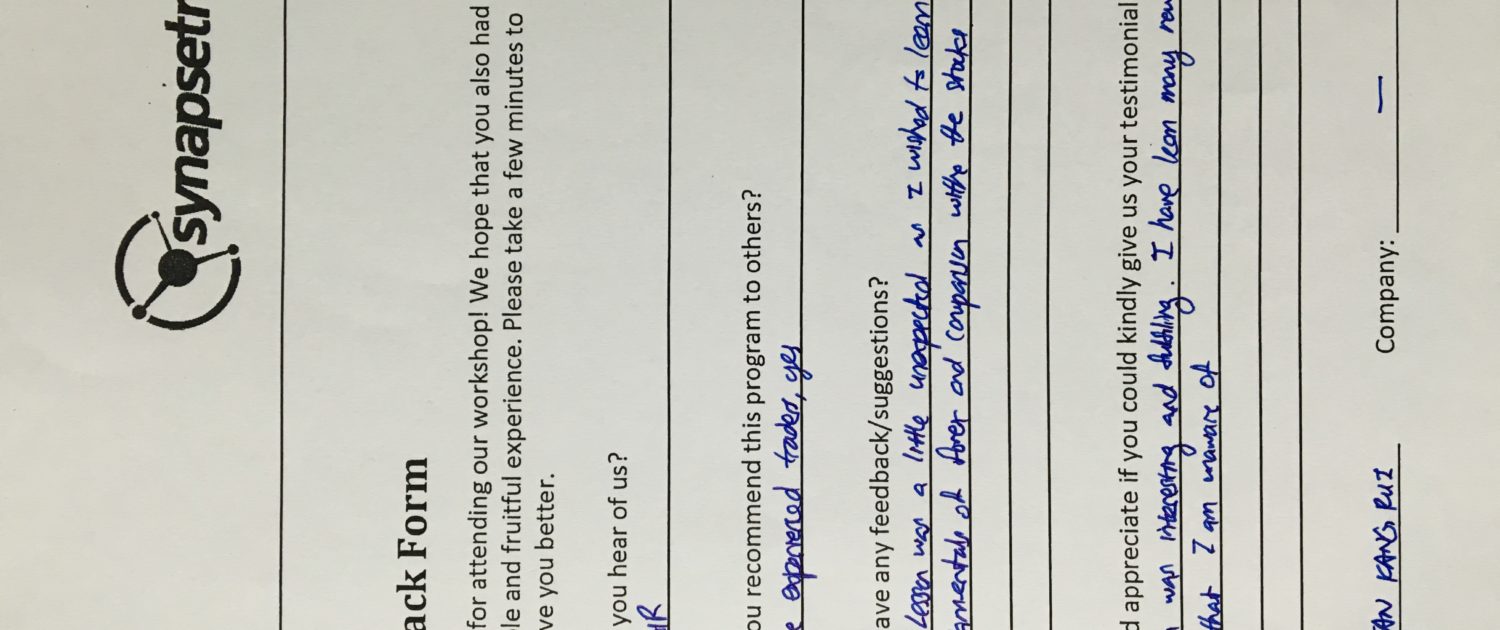 synapsetr
ack Form
for attending our workshop! We hope that you also had
le and fruitful experience. Please take a few minutes to
ve you better.
you hear of us?
ou recommend this program to others?
experienced traders, yes
ave any feedback/suggestions?
Lesson was a little unexpected as I wished to learn
amentals of forex and comparison withe the stocks
d appreciate if you could kindly give us your testimonial
was interesting and . I have learn many new
that I am unaware of
AN KANG RUI Company: —